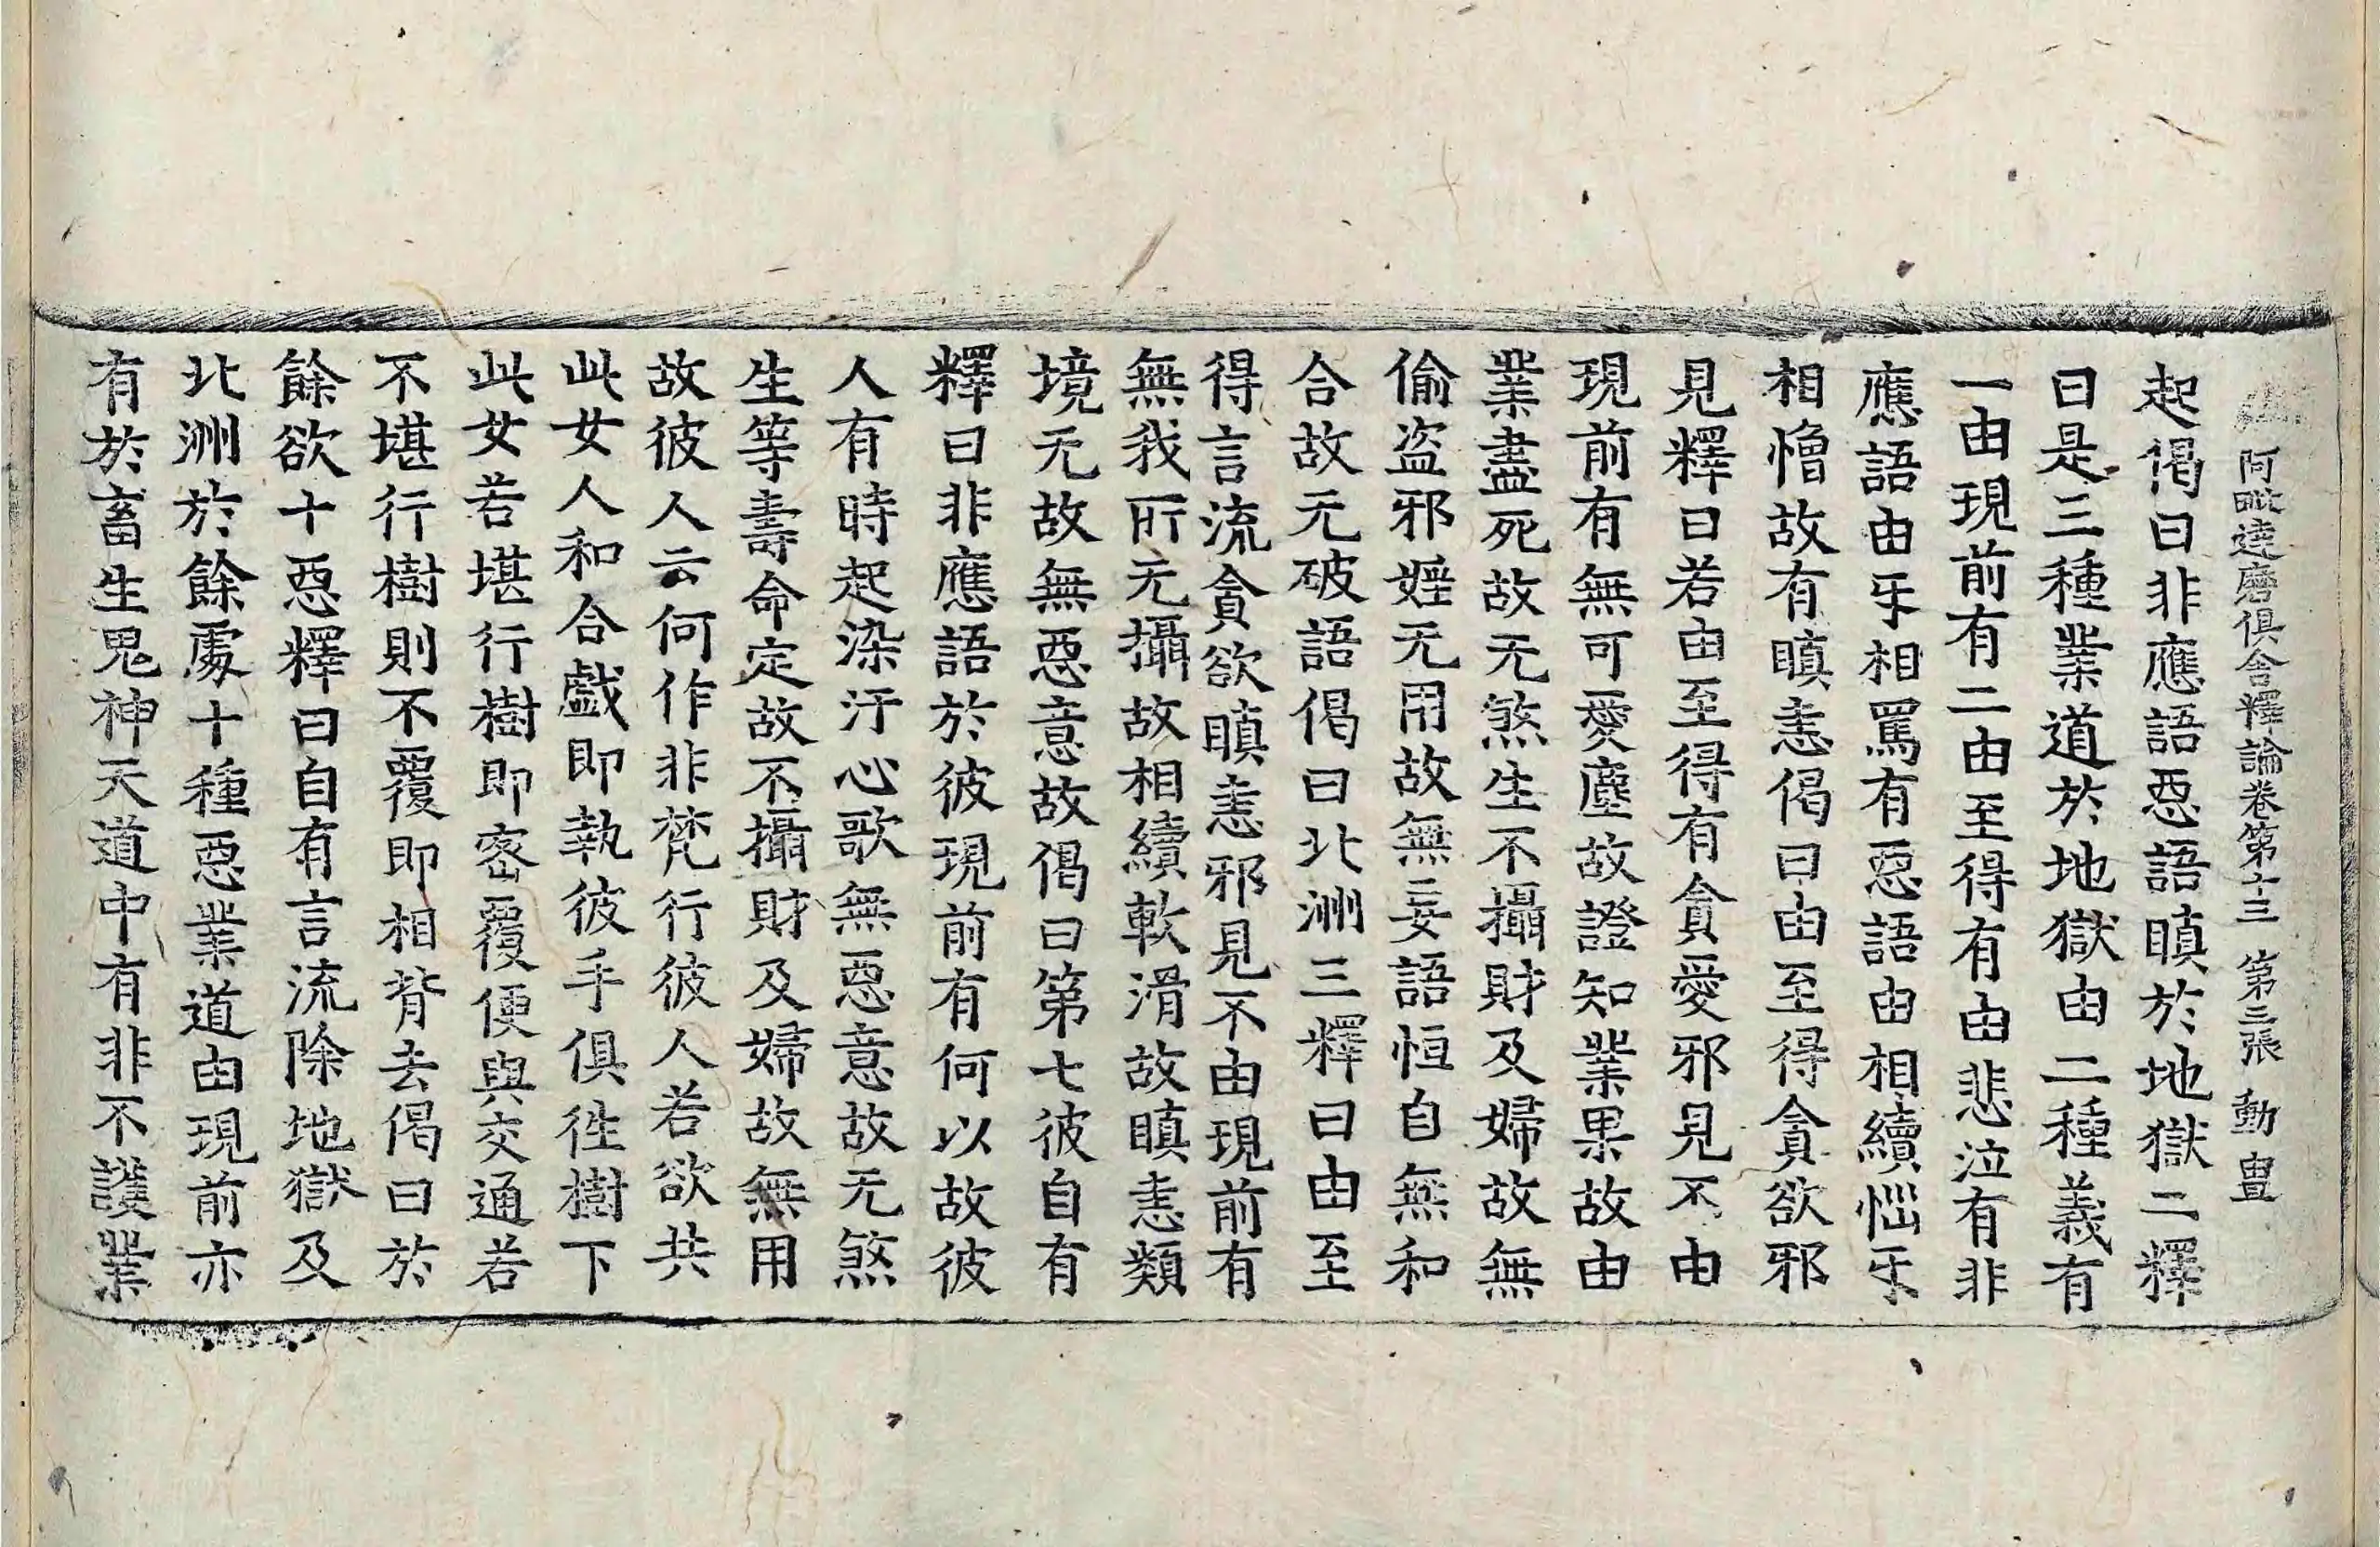 阿毗達磨俱舍釋論卷第十三 第三張 動 𠁅
起偈曰非應語惡語瞋於地獄二釋
曰是三種業道於地獄由二種義有
一由現前有二由至得有由悲泣有非
應語由㸦相罵有惡語由相續惱㸦
相憎故有瞋恚偈曰由至得貪欲邪
見釋曰若由至得有貪愛邪見不由
現前有無可愛塵故證知業果故由
業盡死故无煞生不攝財及婦故無
偷盜邪婬无用故無妄語恒自無和
合故无破語偈曰北洲三釋曰由至
得言流貪欲瞋恚邪見不由現前有
無我所无攝故相續軟滑故瞋恚類
境无故無惡意故偈曰第七彼自有
釋曰非應語於彼現前有何以故彼
人有時起染汙心歌無惡意故无煞
生等壽命定故不攝財及婦故無用
故彼人云何作非梵行彼人若欲共
此女人和合戲即執彼手俱往樹下
此女若堪行樹即密覆便與交通若
不堪行樹則不覆即相背去偈曰於
餘欲十惡釋曰自有言流除地獄及
北洲於餘處十種惡業道由現前亦
有於畜生鬼神天道中有非不護業